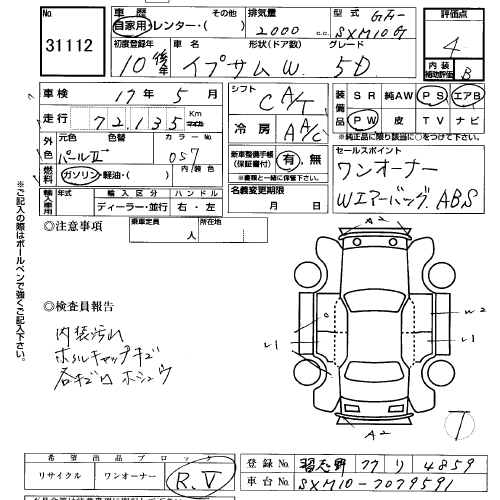 No.
31112
車歴 その他
自家用・レンター・( )
排気量
2000 cc
型式
GH-
SXM10G
評価点
4
初度登録年
10年
車名
イプサム W
形状(ドア数) グレード
5D
内装補助評価
B
車検 17年 5月
走行 72,135 Km
シフト
C A/T
冷房
A A/C
装備品
SR 純AW PS エアB
PW 皮 TV ナビ
*純正品に限り該当に○をつけて下さい。
外色
元色 色替
パールII
カラーNo.
057
内装色
燃料
ガソリン・軽油・( )
新車整備手帳(保証書付) 有・無
※書類と一緒に保管して下さい。
セールスポイント
ワンオーナー
Wエアーバッグ ABS
輸入車
年式 輸入区分 ハンドル
ディーラー・並行 右・左
名義変更期限
月 日
◎注意事項
乗車定員
人
所在地
A2
※ご記入の際はボールペンで強くご記入下さい。
◎検査員報告
内装汚れ
ホイルキャップキズ
各キズ凹 ホシュウ
W2
A2
希望出品ブロック
リサイクル ワンオーナー R.V
登録No. 習志野 77 リ 4859
車台No. SXM10-7079591